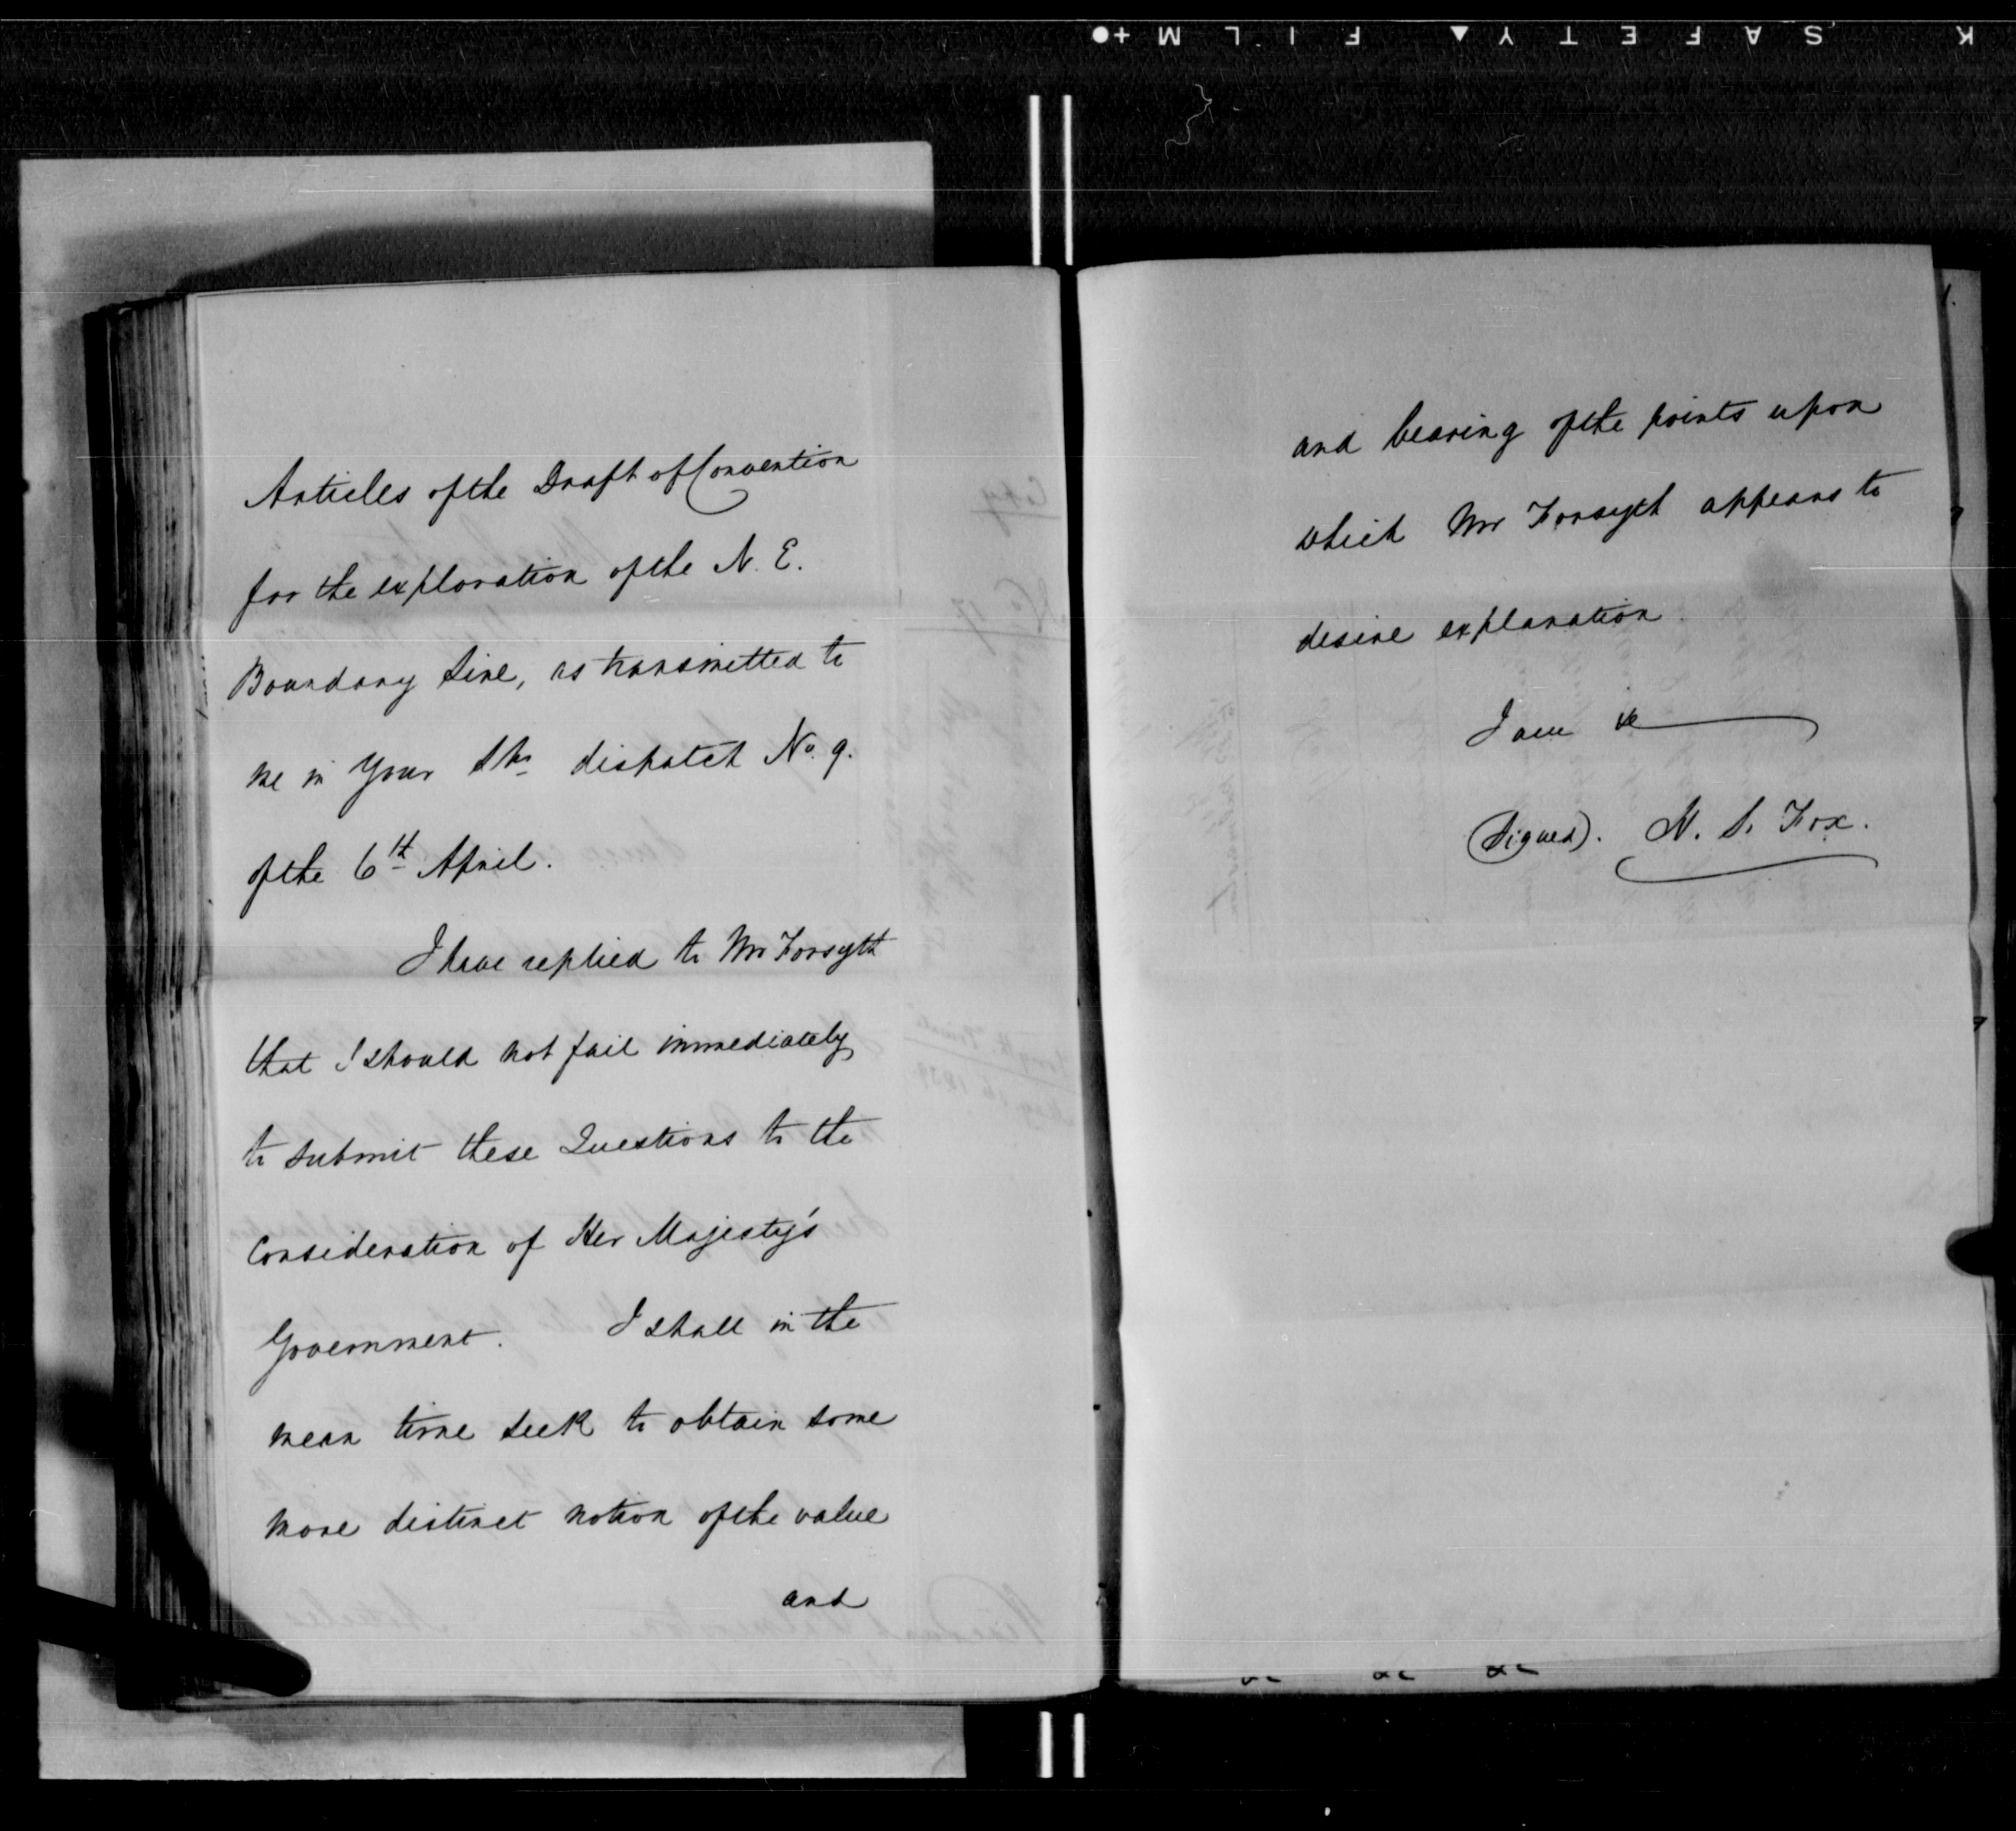 K SAFETY FILM
Articles of the Draft of Convention
for the exploration of the N. E.
Boundary Line, as transmitted to
me in Your dispatch No. 9.
of the 6th April.
I have replied to Mr Forsyth
that I should not fail immediately
to submit these Questions to the
Consideration of Her Majesty's
Government. I shall in the
mean time seek to obtain some
more distinct notion of the value
and
and bearing of the points upon
which Mr Forsyth appears to
desire explanation.
I am &c
(Signed). H. S. Fox.